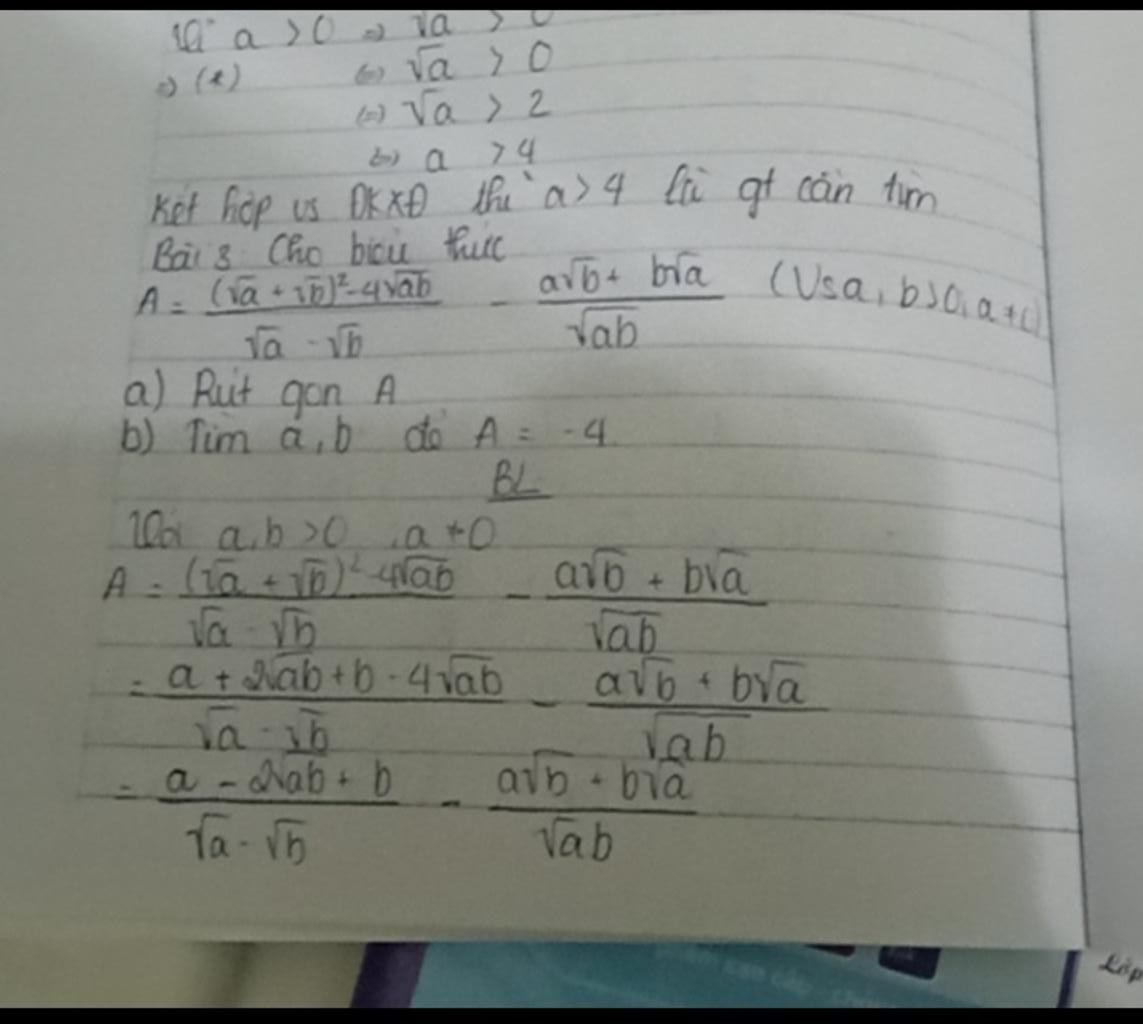 Với a > 0 => √a > 0
=> (*) <=> √a > 0
<=> √a > 2
<=> a > 4
Kết hợp vs ĐKXĐ thì a > 4 là gt cần tìm
Bài 3 Cho biểu thức
A = ((√a + √b)² - 4√ab)/(√a - √b) - (a√b + b√a)/√ab (Vs a, b > 0, a ≠
a) Rút gọn A
b) Tìm a, b để A = -4
BL
Với a, b > 0, a ≠ 0
A = ((√a + √b)² - 4√ab)/(√a - √b) - (a√b + b√a)/√ab
= (a + 2√ab + b - 4√ab)/(√a - √b) - (a√b + b√a)/√ab
= (a - 2√ab + b)/(√a - √b) - (a√b + b√a)/√ab
Lớp